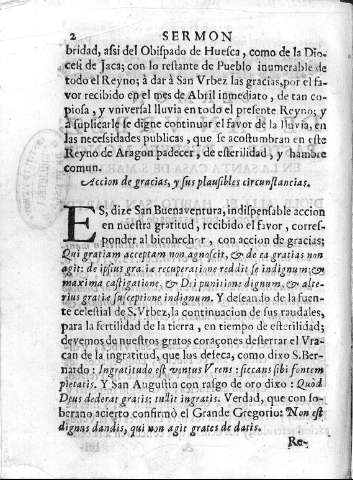 2 SERMON
bridad, assi del Obispado de Huesca, como de la Dio-
cesi de Jaca; con lo restante de Pueblo inumerable de
todo el Reyno; à dar à San Vrbez las gracias, por el fa-
vor recibido en el mes de Abril inmediato, de tan co-
piosa, y vniversal lluvia en todo el presente Reyno; y
à suplicarle se digne continuar el favor de la lluvia, en
las necessidades publicas, que se acostumbran en este
Reyno de Aragon padecer, de esterilidad, y hambre
comun.
Accion de gracias, y sus plausibles circunstancias.
ES, dize San Buenaventura, indispensable accion
en nuestra gratitud, recibido el favor, corres-
ponder al bienhechor, con accion de gracias;
Qui gratiam acceptam non agnoscit, & de ea gratias non
agit; de ipsius gratiæ recuperatione reddit se indignum; &
maxima castigatione, & Dei punitione dignum, & alte-
rius gratiæ susceptione indignum. Y deseando de la fuente
celestial de S. Vrbez, la continuacion de sus raudales,
para la fertilidad de la tierra, en tiempo de esterilidad;
devemos de nuestros gratos coraçones desterrar el Vra-
can de la ingratitud, que los deseca, como dixo S. Ber-
nardo: Ingratitudo est ventus Vrens: siccans sibi fontem
pietatis. Y San Augustin con rasgo de oro dixo: Quod
Deus dederat gratis; tullit ingratis. Verdad, que con so-
berano acierto confirmò el Grande Gregorio: Non est
dignus dandis, qui non agit grates de datis.
Re-